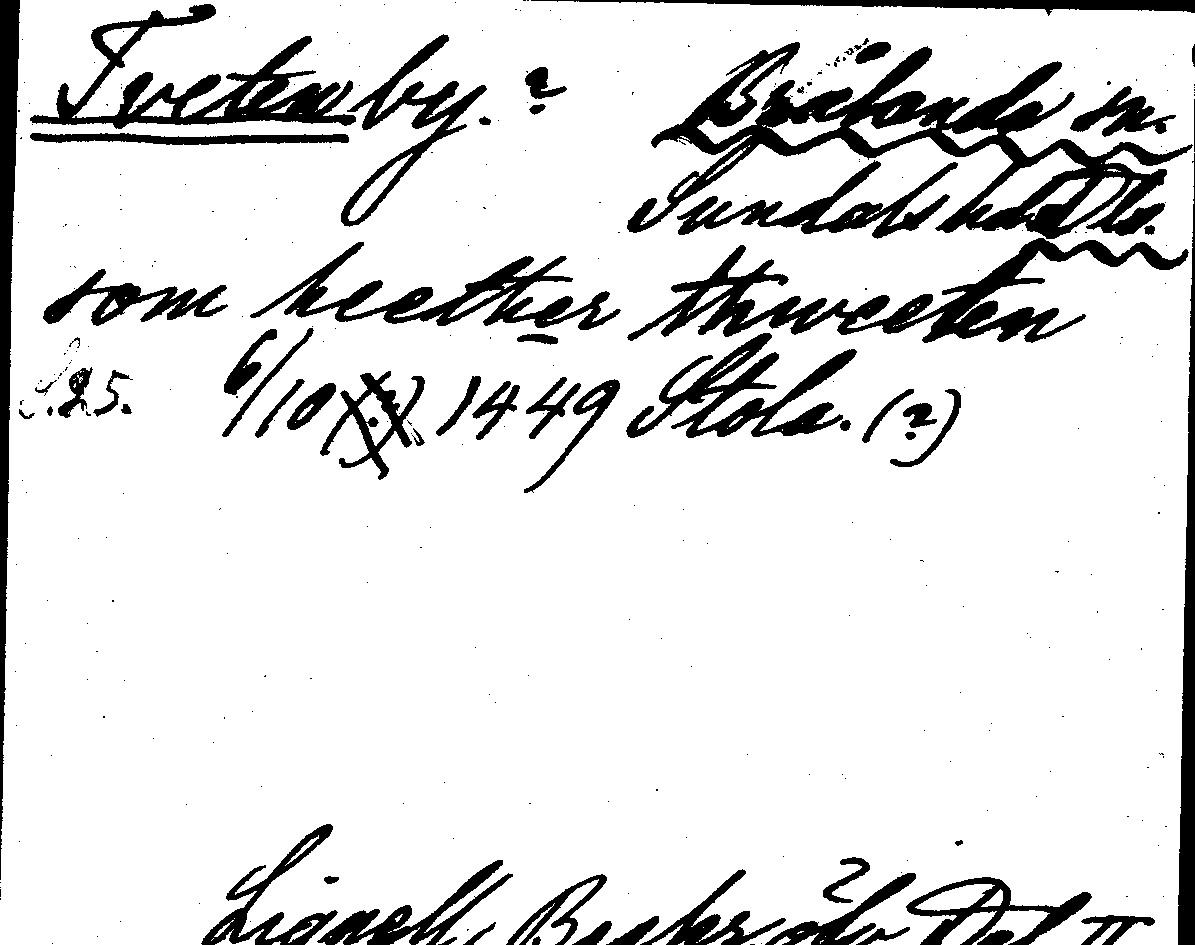 Tveten by. ?
Brålanda sn.
Sundals hd Dls.
som heether thweeten
S. 25. 6/10 (?) 1449 Stola. (?)
Lignell, Beskr. öfv. Dal II